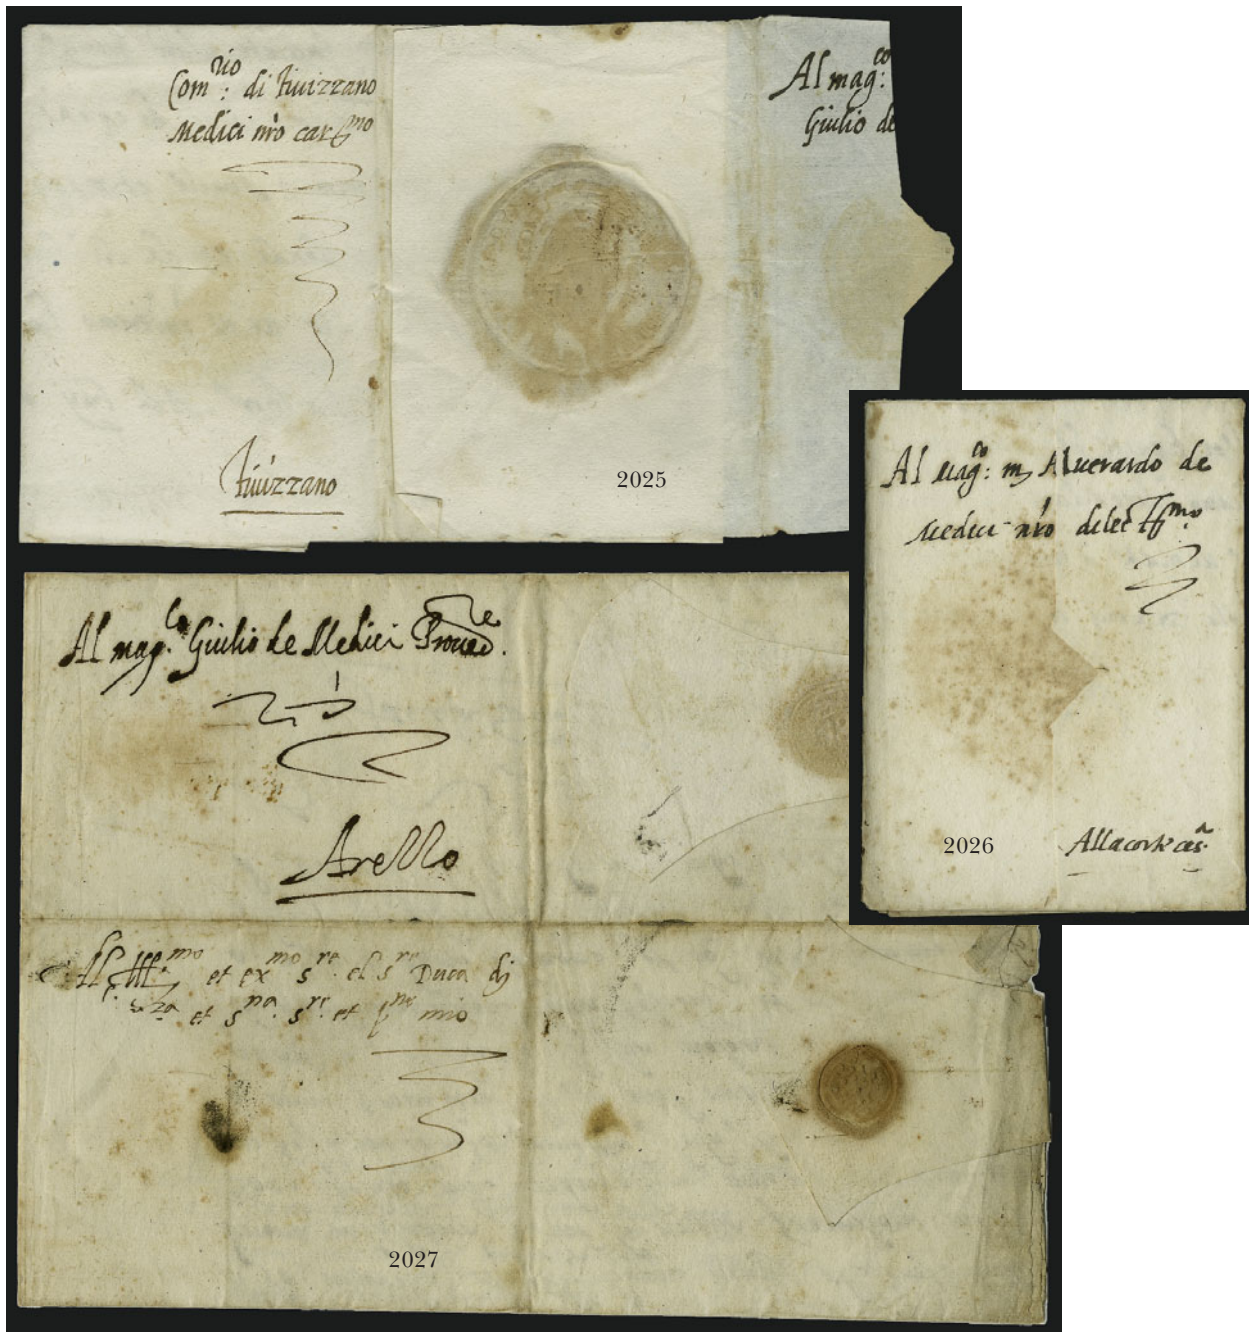 Com.rio di Fivizzano
Medici nro car.mo
Al mag.co
Giulio de
Fivizzano
2025
Al Mag.co m Alverardo de
Medici nro dilec.mo
2026
Alla corte ces.a
Al mag.co Giulio de Medici Proved.re
Arezzo
Al Ill.mo et ex.mo s.re el s.re Duca di
et s.na s.re et p.ne mio
2027